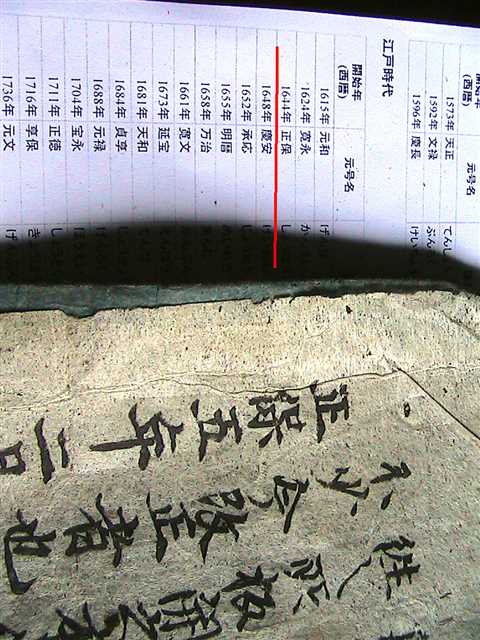 (西暦) 元号名
1573年 天正 てんし
1592年 文禄 ぶん
1596年 慶長 けい
江戸時代
開始年
(西暦) 元号名
1615年 元和
1624年 寛永
1644年 正保
1648年 慶安
1652年 承応
1655年 明暦
1658年 万治
1661年 寛文
1673年 延宝
1681年 天和
1684年 貞享
1688年 元禄
1704年 宝永
1711年 正徳
1716年 享保
1736年 元文
所板開之
不少今改正者也
正保五年二月